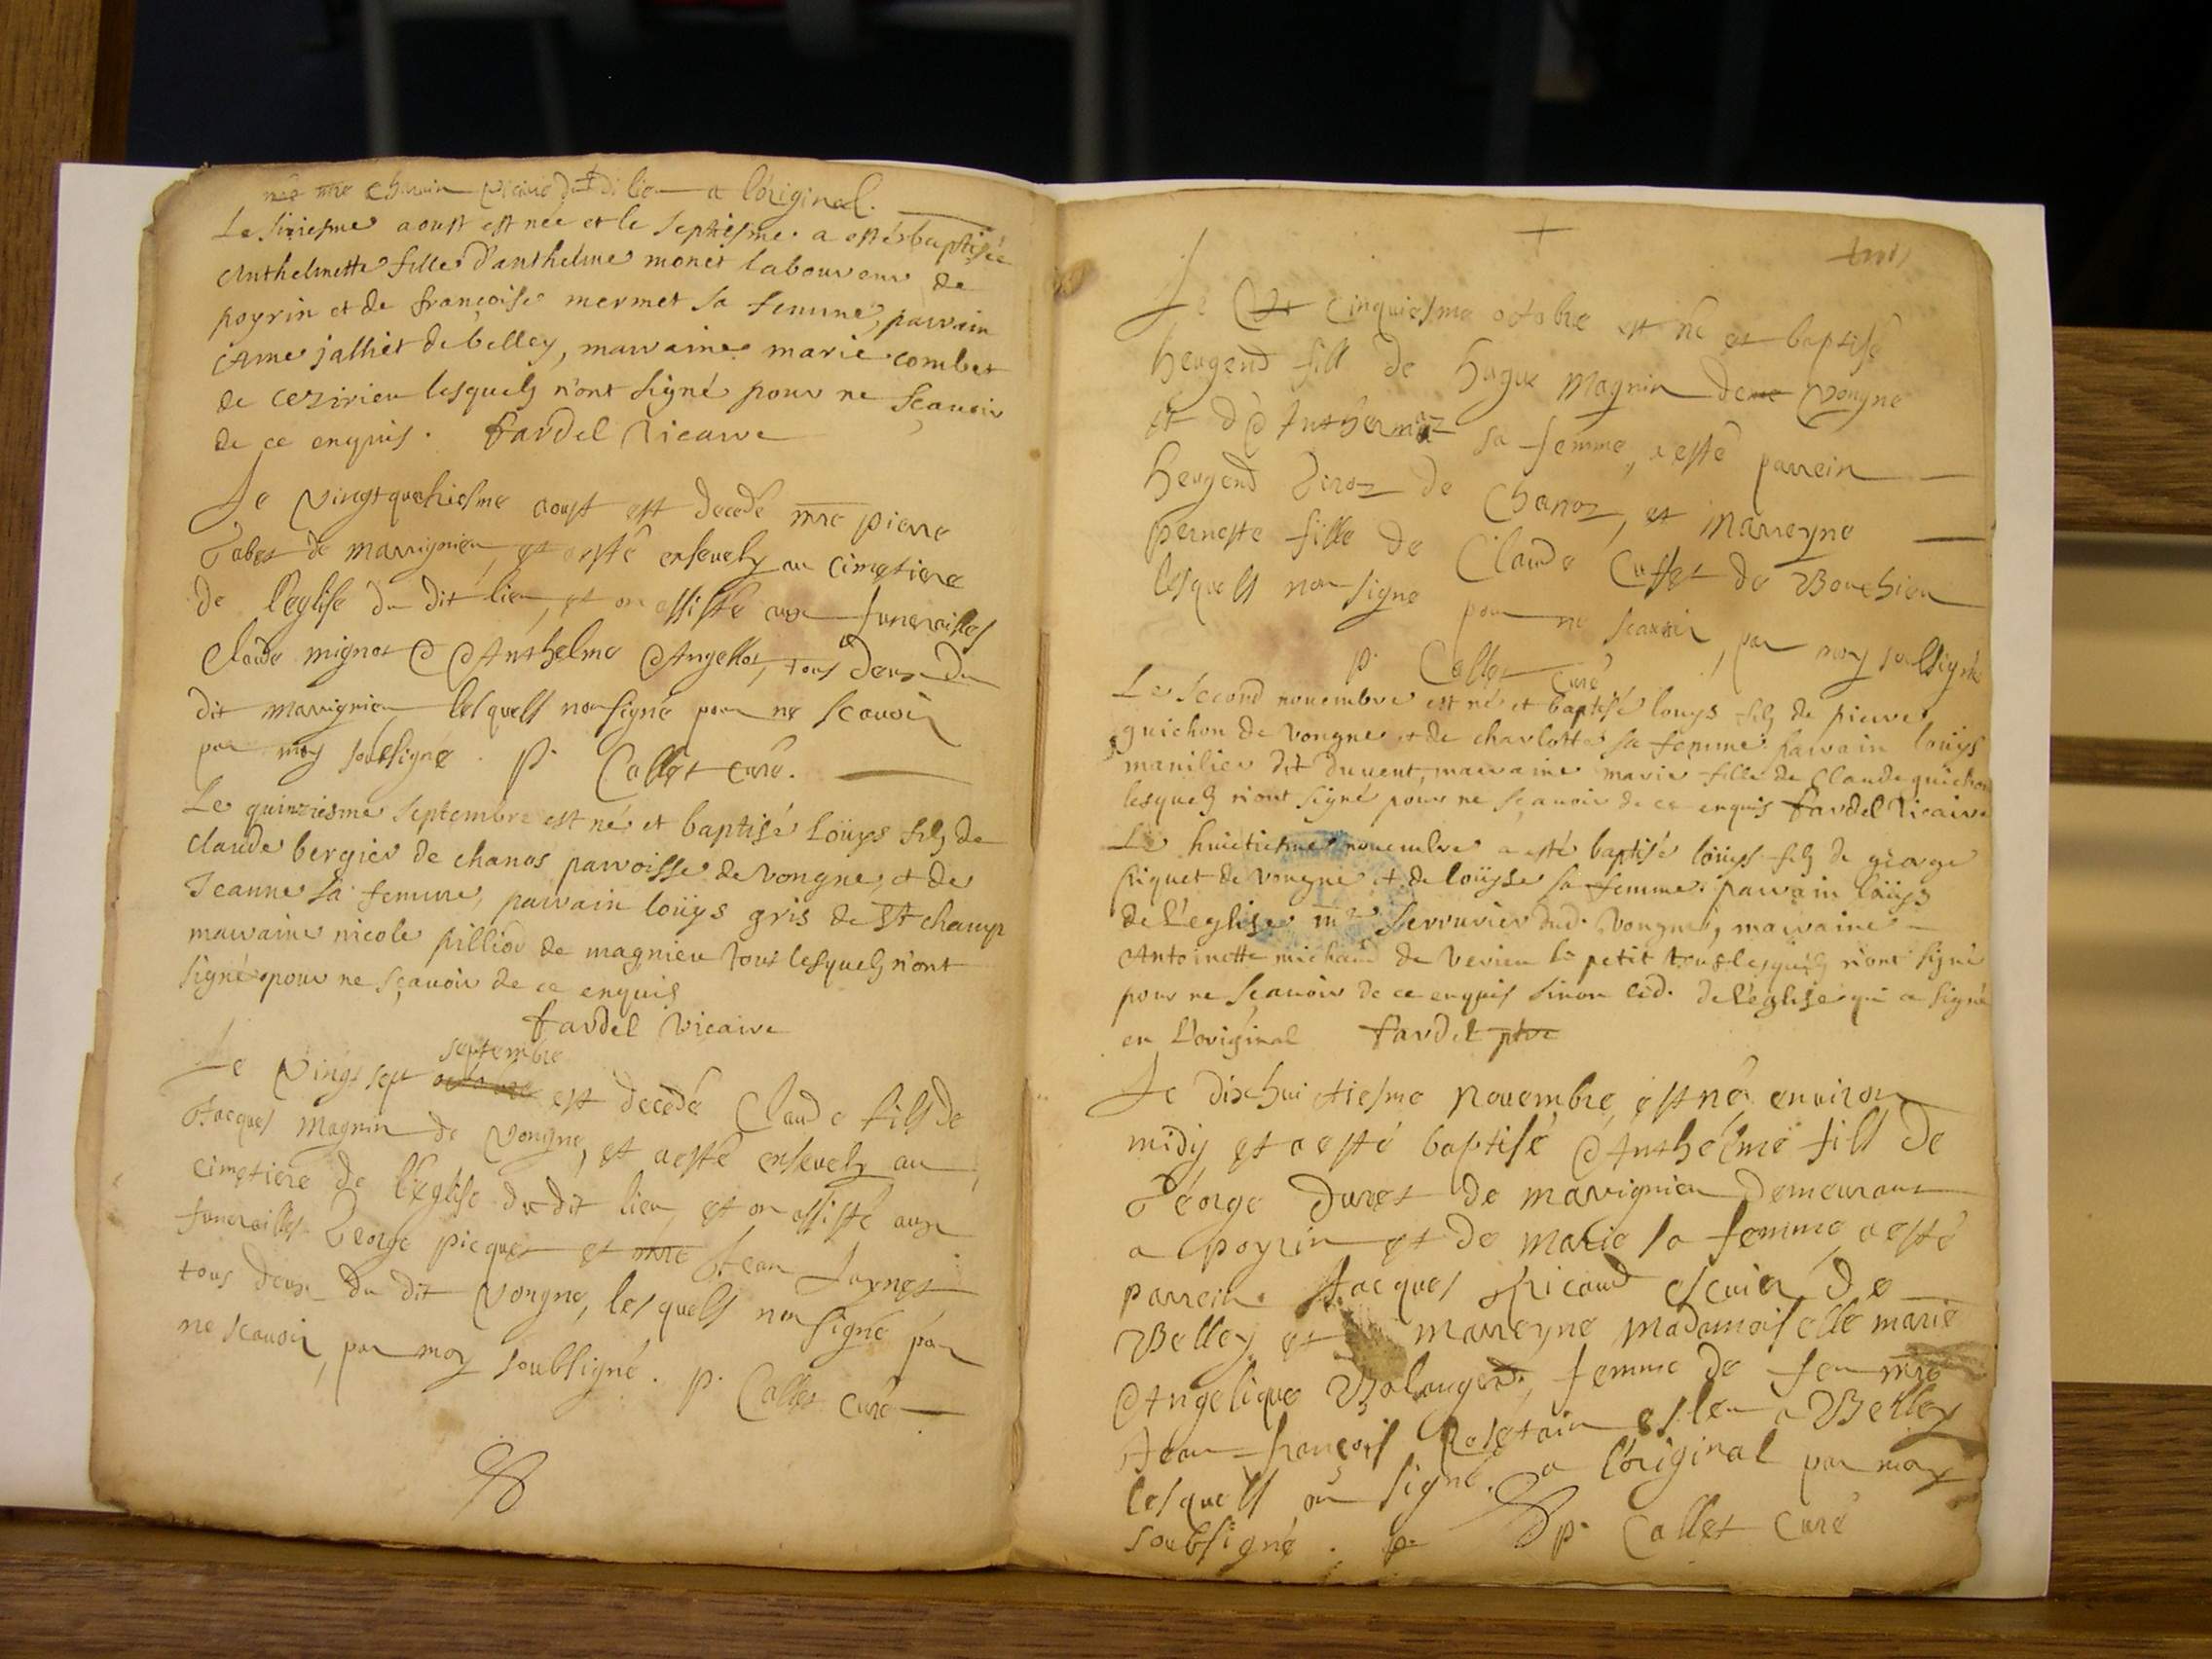 vicaire du dit lieu a l'original.
Le sixiesme aoust est née et le septiesme a esté baptisée
Anthelmette fille d'anthelme monet laboureur de
poyrin et de françoise mermet sa femme, parrain
Ame jalliet de belley, marraine marie combet
de cezirieu lesquelz n'ont signé pour ne sçauoir
de ce enquis. fardel vicaire
Le vingt quatriesme aoust est decedé mre pierre
de marrignieu, et a esté ensevely au cimetiere
de l'eglise du dit lieu, et on assisté aux funerailles
Claude mignot & Anthelme Angellot, tous deux du
dit marrignieu lesquels non signé pour ne scavoir
par moy soubsigné. p. Collet curé.
Le quinziesme septembre est né et baptisé loüys filz de
claude bergier de chanos parroisse de vongne, et de
Jeanne sa femme, parrain loüys gris de St champ
marraine nicole pilliod de magnieu tous lesquelz n'ont
signé pour ne sçauoir de ce enquis
fardel vicaire
septembre
Le vingt sept octobre est decedé Claude fils de
Jacques magnin de vongne, et a esté ensevely au
cimetiere de l'eglise du dit lieu, et on assisté aux
funerailles George picquet et mre Jean
tous deux du dit vongne, lesquels non signé pour
ne scavoir, par moy soubsigné. p. Collet curé
Le cinquiesme octobre est né et baptisé
heugend fils de hugue magnin de vongne
et d'Anthermoz sa femme, a esté parrein
heugend de Chanoz, et marreyne
pernette fille de Claude Cuffet de
lesquels non signé pour ne scavoir, par moy soubsigné
p. Collet curé
Le second nouembre est né et baptisé louys filz de pierre
guichon de vongne et de charlotte sa femme parrain loüys
manilier dit duvent, marraine marie fille de Claude guichon
lesquelz n'ont signé pour ne sçauoir de ce enquis fardel vicaire
Le huictiesme nouembre a esté baptisé loüys filz de george
piquet de vongne et de loüyse sa femme. parrain loüys
de l'eglise mre serrurier dud. vongne, marraine
Antoinette michaud de verieu le petit tous lesquelz n'ont signé
pour ne sçauoir de ce enquis sinon led. de l'eglise qui a signé
en l'original fardel ptre
Le dixhuictiesme novembre est né environ
midy et a esté baptisé Anthelme fils de
George duret de marrignieu demeurant
a poyrin et de marie sa femme a esté
parrein. Jacques Ricaud escuier de
Belley et marreyne madamoiselle marie
Angelique femme de feu mre
Jean françois Rosetain esleu a Belley
lesquels on signé. a l'original par moy
soubsigné. p. Collet curé